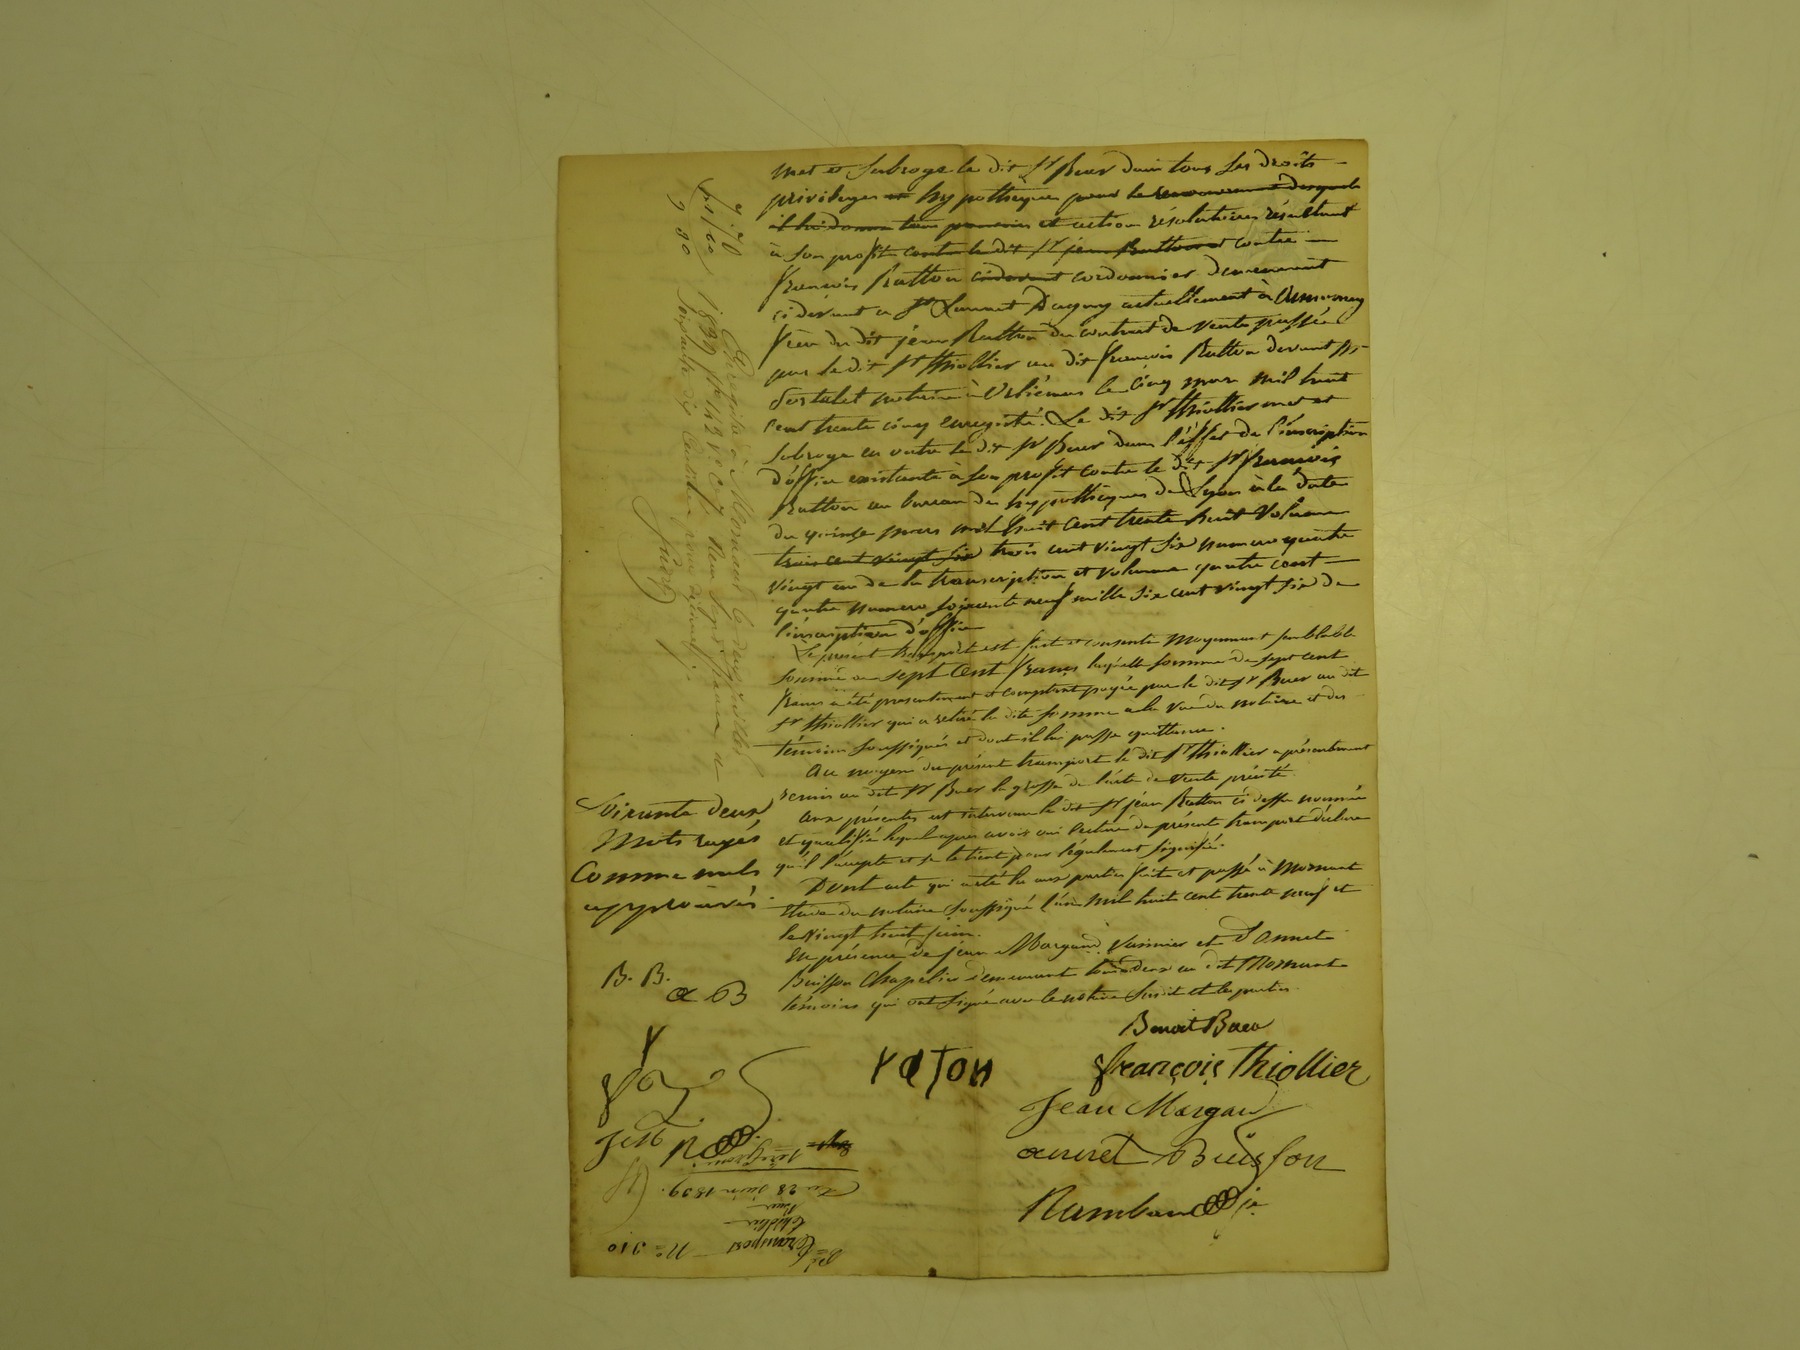 met et subroge le dit Sr Buer dans tous ses droits
privileges et hypotheques pour le recouvrement desquels
il lui donne tous pouvoirs et action résolutoires résultant
à son profit contre le dit Sr jean Ratton contre
francois Ratton cidevant cordonnier demeurant
cidevant a St Laurent Dagny actuellement à Annonay
frère du dit jean Ratton du contrat de vente passée
par le dit Sr thiollier au dit francois Ratton devant Me
notaire à Orliénas le cinq mars mil huit
cent trente cinq enregistré. Le dit Sr thiollier met et
subroge en outre le dit Sr Buer dans l'éffet de l'inscription
d'office existante à son profit contre le dit Sr francois
Ratton au bureau des hypothèques de Lyon à la date
du quinze mars mil huit cent trente huit volume
trois cent vingt six trois cent vingt six numero quatre
vingt un de la transcription et volume quatre cent
quatre numero soixante neuf mille six cent vingt six de
l'inscription d'office
Le présent transport est fait et consenti moyennant semblable
somme de sept cent francs laquelle somme de sept cent
francs a été presentement et comptant payée par le dit Sr Buer au dit
Sr thiollier qui a retiré la dite somme a la vue du notaire et des
témoins soussignés et dont il lui passe quittance.
Au moyen du present transport le dit Sr thiollier a présentement
remis au dit Sr Buer la grosse de l'acte de vente précité
aux présentes est intervenu le dit Sr jean Ratton ci dessus nommé
et qualifié lequel apres avoir oui lecture du présent transport déclare
qu'il l'accepte et se le tient pour légalement signifié.
Dont acte qui a été lu aux parties fait et passé à Mornant
étude du notaire soussigné l'an mil huit cent trente neuf et
le vingt huit juin.
En présence de jean Margand vannier et d'annet
Buisson chapelier demeurant tous deux au dit Mornant
témoins qui ont signé avec le notaire susdit et les parties.
Soixante deux
Mots rayés
Comme nuls
approuvés.
B. B.
a B
Benoit Buer
raton
françois Thiollier
Jean Margand
annet Buisson
Rambaud
Enregistré à Mornant le
1839
Du 28 juin 1839.
Transport
thiollier
Buer
No 310